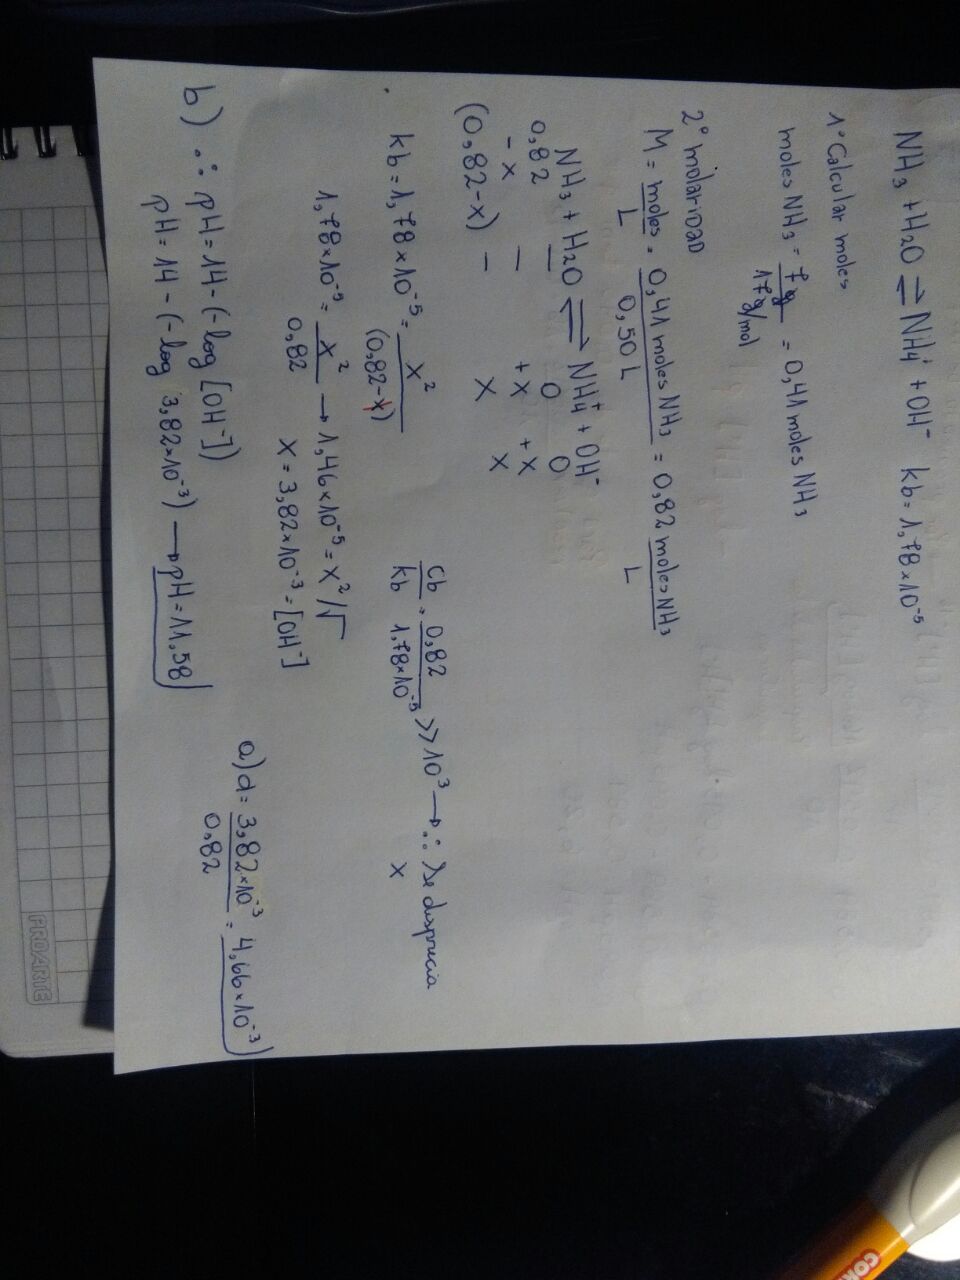 NH₃ + H₂O ⇌ NH₄⁺ + OH⁻   kb = 1,78×10⁻⁵
1° Calcular moles
moles NH₃ = 7 g / 17 g/mol = 0,41 moles NH₃
2° molaridad
M = moles / L = 0,41 moles NH₃ / 0,50 L = 0,82 moles NH₃ / L
NH₃ + H₂O ⇌ NH₄⁺ + OH⁻
0,82 — 0 0
-x — +x +x
(0,82-x) — x x
Cb / kb = 0,82 / 1,78×10⁻⁵ >> 10³ → ∴ Se desprecia
x
kb = 1,78×10⁻⁵ = x² / (0,82-x)
1,78×10⁻⁵ = x² / 0,82 → 1,46×10⁻⁵ = x² /√
x = 3,82×10⁻³ = [OH⁻]
a) α = 3,82×10⁻³ / 0,82 = 4,66×10⁻³
b) ∴ pH = 14 - (-log [OH⁻])
pH = 14 - (-log 3,82×10⁻³) → pH = 11,58
PROARTE